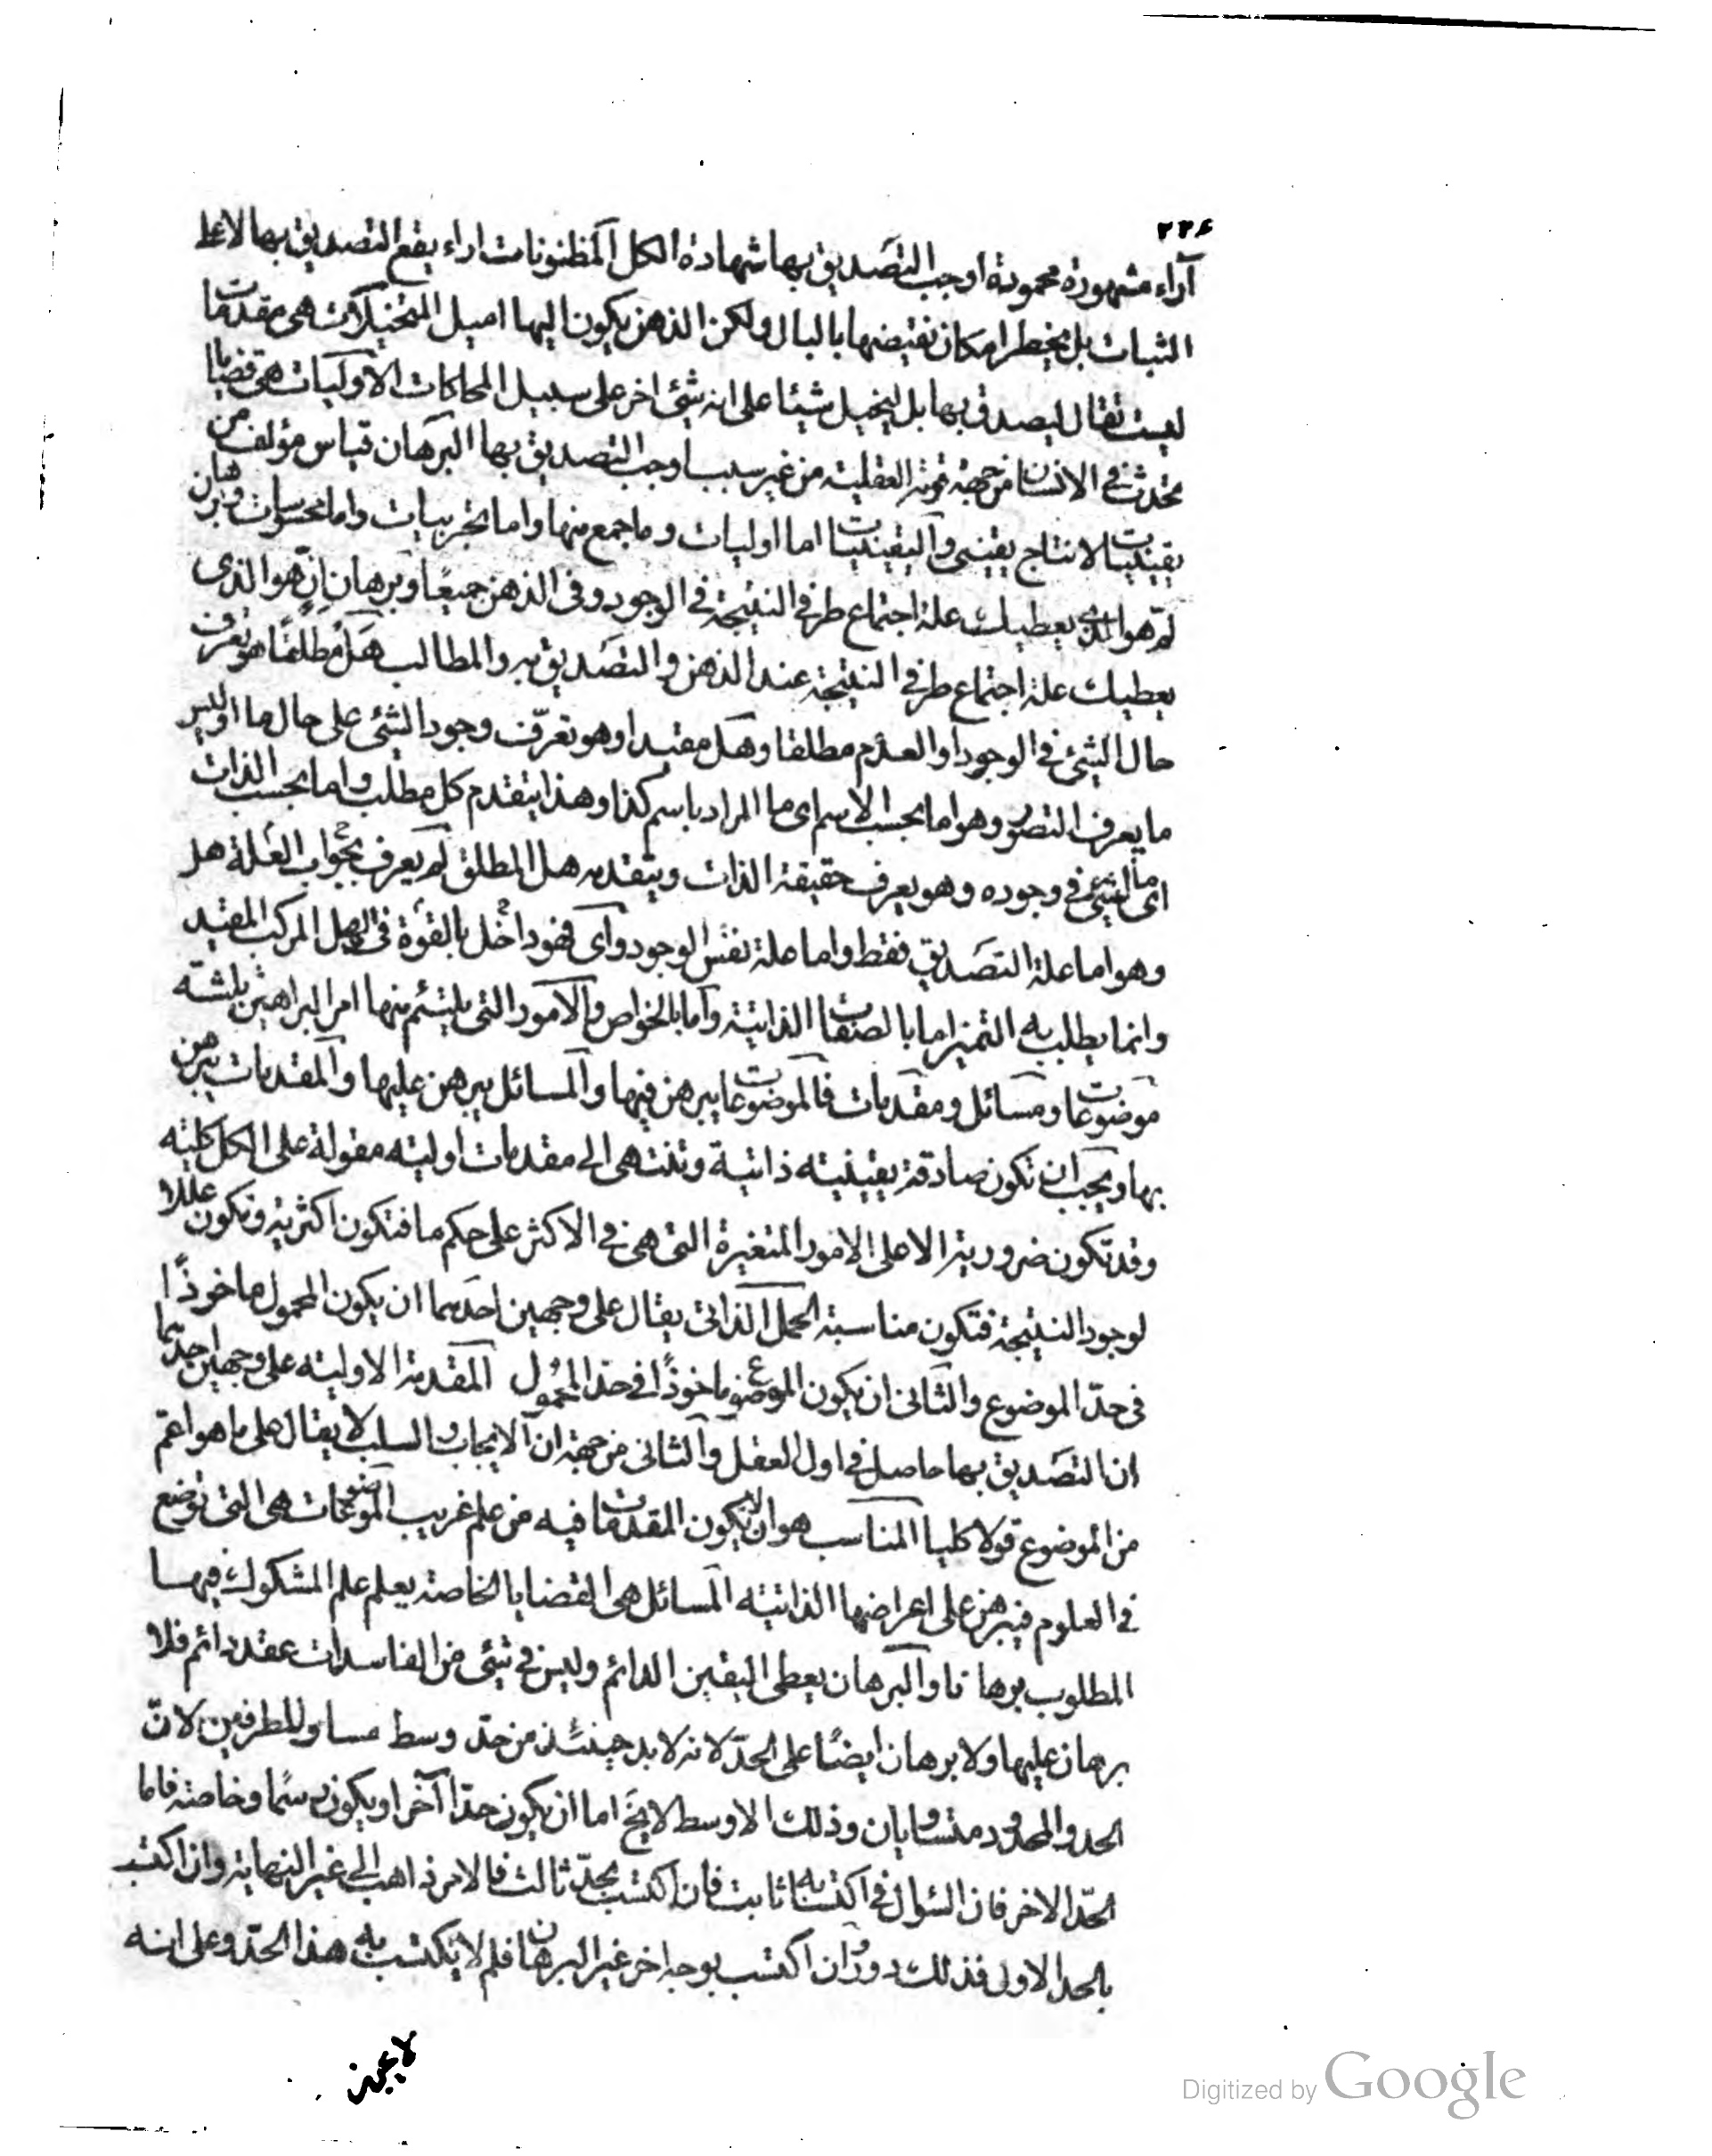 ٢٢٤
آراء مشهورة محمودة اوجب التصديق بها شهادة الكل المظنونات اراء يقع التصديق بها لا على
الثبات بل يخطر امكان نقيضها بالبال ولكن الذهن يكون اليها اميل المتخيلات هى مقدمات
ليست تقال ليصدق بها بل ليخيل شيئا على انه شئ اخر على سبيل المحاكات الاوليات هى قضايا
تحدث فى الانسان من جهة قوته العقلية من غير سبب اوجب التصديق بها البرهان قياس مؤلف من
يقينيات لانتاج يقينى واليقينيات اما اوليات وما جمع منها واما تجربيات واما محسوسات وبرهان
لم هو الذى يعطيك علة اجتماع طرفى النتيجة فى الوجود وفى الذهن جميعا وبرهان ان هو الذى
يعطيك علة اجتماع طرفى النتيجة عند الذهن والتصديق به والمطالب هل مطلقا هو تعرف
حال الشئ فى الوجود او العدم مطلقا وهل مقيدا وهو تعرّف وجود الشئ على حال ما او ليس
ما يعرف التصور وهو اما بحسب الاسم اى ما المراد باسم كذا وهذا يتقدم كل مطلب واما بحسب الذات
اى ما الشئ فى وجوده وهو يعرف حقيقة الذات ويتقدمه هل المطلق لم يعرف بجواب العلة هل
وهو اما علة التصديق فقط واما علة نفس الوجود واى فهو داخل بالقوة فى الهل المركب المقيد
وانما يطلب به التميز اما بالصفات الذاتية واما بالخواص والامور التى يلتئم منها امر البراهين ثلثة
موضوعات ومسائل ومقدمات فالموضوعات يبرهن فيها والمسائل يبرهن عليها والمقدمات يبرهن
بها ويجب ان تكون صادقة يقينية ذاتية وتنتهى الى مقدمات اولية مقولة على الكل كلية
وقد تكون ضرورية الا على الامور المتغيرة التى هى فى الاكثر على حكم ما فتكون اكثرية وتكون عللا
لوجود النتيجة فتكون مناسبة الحمل الذاتى يقال على وجهين احدهما ان يكون المحمول ماخوذًا
فى حدّ الموضوع والثانى ان يكون الموضوع ماخوذًا فى حد المحمول المقدمة الاولية على وجهين احدهما
ان التصديق بها حاصل فى اول العقل والثانى من جهة ان الايجاب والسلب لا يقال على ما هو اعم
من الموضوع قولا كليا المناسب هو ان لا يكون المقدمات فيه من علم غريب الموضوعات هى التى توضع
فى العلوم فيبرهن على اعراضها الذاتية المسائل هى القضايا الخاصة يعلم علم المشكوك فيها
المطلوب برهانا والبرهان يعطى اليقين الدائم وليس فى شئ من الفاسدات عقد دائم فلا
برهان عليها ولا برهان ايضًا على الحدّ لانه لا بد حينئذ من حدّ وسط مساو للطرفين لانّ
الحد والمحدود متساويان وذلك الاوسط لا يخ اما ان يكون حدّا آخر او يكون رسمًا وخاصة فاما
الحدّ الاخر فان السؤال فى اكتسابه ثابت فان اكتسب بحدّ ثالث فالامر ذاهب الى غير النهاية وان اكتسب
بالحد الاول فذلك دور وان اكتسب بوجه اخر غير البرهان فلم لا يكتسب به هذا الحدّ وعلى انه
لا يجوز
Digitized by Google